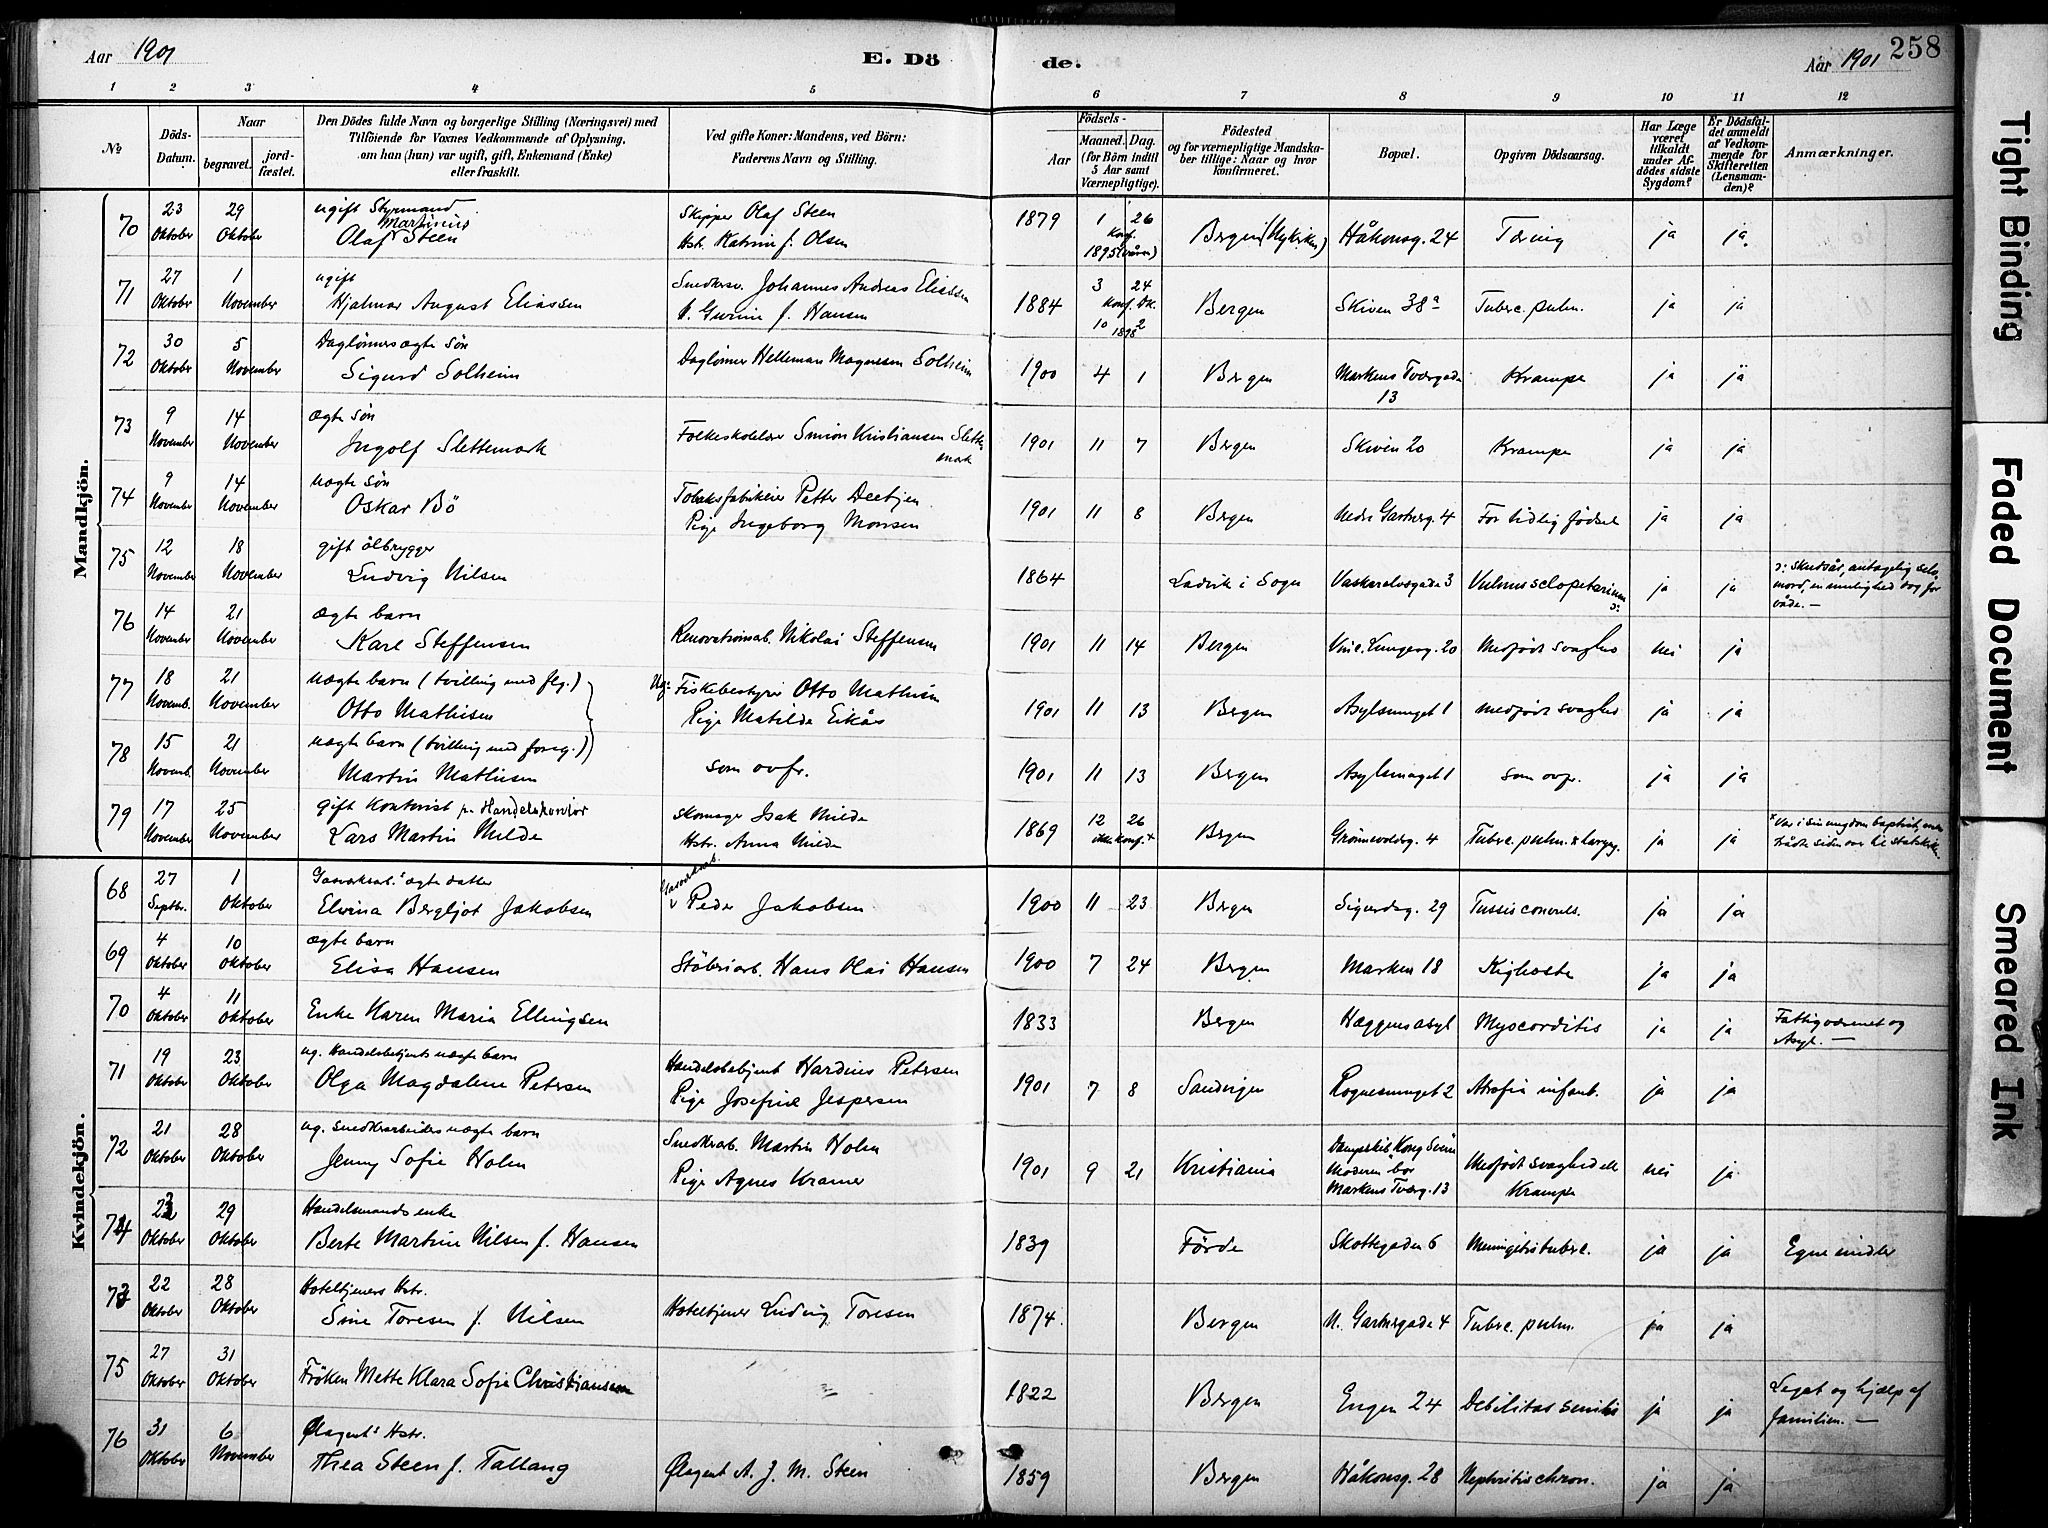 Aar 1901
E. Dö
de.
Aar 1901
258
1 2 3 4 5 6 7 8 9 10 11 12
No
Döds-Datum.
Naar
begravet.
jord-fæstet.
Den Dödes fulde Navn og borgerlige Stilling (Næringsvei) med
Tilföiende for Voxnes Vedkommende af Oplysning,
om han (hun) var ugift, gift, Enkemand (Enke)
eller fraskilt.
Ved gifte Koner: Mandens, ved Börn:
Faderens Navn og Stilling.
Födsels-
Aar
Maaned. Dag.
(for Börn indtil
5 Aar samt
Værnepligtige).
Födested
og for værnepligtige Mandska-
ber tillige: Naar og hvor
konfirmeret.
Bopæl.
Opgiven Dödsaarsag.
Har Læge
været
tilkaldt
under Af-
dödes sidste
Sygdom?
Er Dödsfal-
det anmeldt
af Vedkom-
mende for
Skifteretten
(Lensman-
den)?
Anmærkninger.
Mandkjön.
70 23 Oktober 29 Oktober ugift Styrmand
Olaf Martinius Steen
Skipper Olaf Steen
Hstr. Katrine f. Olsen
1879 1 26 Konf. 1895 (våren) Bergen (Nykirken) Håkonsg. 24 Tæring ja ja
71 27 Oktober 1 November ugift
Hjalmar August Eliassen
Snedkersv. Johannes Andreas Eliassen
f. Hansen
1884 3 24 Konf. Dk. 10 2 1898 Bergen Skiven 38a Tuberc. pulm. ja ja
72 30 Oktober 5 November Daglönners ægte sön
Sigurd Solheim
Daglönner Helleman Magnesen Solheim
1900 4 1 Bergen Markens Tværgade 13 Krampe ja ja
73 9 November 14 November ægte sön
Ingolf Slettemark
Folkeskolelærer Simon Kristiansen Slettemark
1901 11 7 Bergen Skiven 20 Krampe ja ja
74 9 November 14 November uægte sön
Oskar Bö
Tobaksfabrikeier Petter
Pige Ingeborg Monsen
1901 11 8 Bergen Nedre Gartnerg. 4 For tidlig födsel ja ja
75 12 November 18 November gift ölbrygger
Ludvig Nilsen
1864 Ladvik i Sogn Vaskerelvsgade 3 Vulnus sclopetarium ɔ: ja ja
ɔ: skudsår, antagelig selvmord, en mulighed dog for våde.—
76 14 November 21 November ægte barn
Karl Steffensen
Renovationsarb. Nikolai Steffensen
1901 11 14 Bergen Vinc. Lungesg. 20 Medfödt svaghed nei ja
77 18 Novemb. 21 November uægte barn (tvilling med flg.)
Otto Mathisen
Ug: Fiskebestyrer Otto Mathisen
Pige Matilde Eikås
1901 11 13 Bergen Asylsmuget 1 medfödt svaghed ja ja
78 15 Novemb. 21 November uægte barn (tvilling med foreg.)
Martin Mathisen
som ovfr.
1901 11 13 Bergen Asylsmuget 1 som ovfr. ja ja
79 17 November 25 November gift Kontorist på Handelskontor
Lars Martin Milde
Skomager Isak Milde
Hstr. Anna Milde
1869 12 26 ikke konf. x Bergen Grönnevoldsg. 4 Tuberc. pulm. & laryng. ja ja
x Var i sin ungdom baptist, men trådte siden over til statskirken.
Kvindekjön.
68 27 Septbr. 1 Oktober Gasværksarb.s ægte datter
Elvina Bergljot Jakobsen
Gasværksarb. Peder Jakobsen
1900 11 23 Bergen Sigurdsg. 29 Tussis convuls. ja ja
69 4 Oktober 10 Oktober ægte barn
Elisa Hansen
Stöberiarb. Hans Olai Hansen
1900 7 24 Bergen Marken 18 Kighoste ja ja
70 4 Oktober 11 Oktober Enke Karen Maria Ellingsen
1833 Bergen Hæggens asyl Myocarditis ja ja Fattigvæsenet og Asyl.—
71 19 Oktober 23 Oktober ug. Handelsbetjents uægte barn
Olga Magdalene Petersen
Handelsbetjent Hardius Petersen
Pige Josefine Jespersen
1901 7 8 Sandvigen Rognesmuget 2 Atrofia infant. ja ja
72 21 Oktober 28 Oktober ug. snedkerarbeiders uægte barn
Jenny Sofie Holm
Snedkerarb. Martin Holm
Pige Agnes Kramer
1901 9 21 Kristiania Dampskib Kong
Moderen bor
Markens Tværg. 13 Medfödt svaghed
Krampe nei ja
74 23 Oktober 29 Oktober Handelsmands enke
Berte Martine Nilsen f. Hansen
1839 Förde Skottegaden 6 Meningitis tuberc. ja ja Egne midler
73 22 Oktober 28 Oktober Hoteltjeners Hstr.
Sine Toresen f. Nilsen
Hoteltjener Ludvig Toresen
1874 Bergen N. Gartnergade 4 Tuberc. pulm. ja ja
75 27 Oktober 31 Oktober Fröken Mette Klara Sofie Christiansen
1822 Bergen Engen 24 Debilitas senilis ja ja Legat og hjælp af familien.—
76 31 Oktober 6 November Ølagents Hstr.
Thea Steen f. Tallang
Ølagent A. J. M. Steen
1859 Bergen Håkonsg. 28 Nephritis chron. ja ja
Tight Binding
Faded Document
Smeared Ink